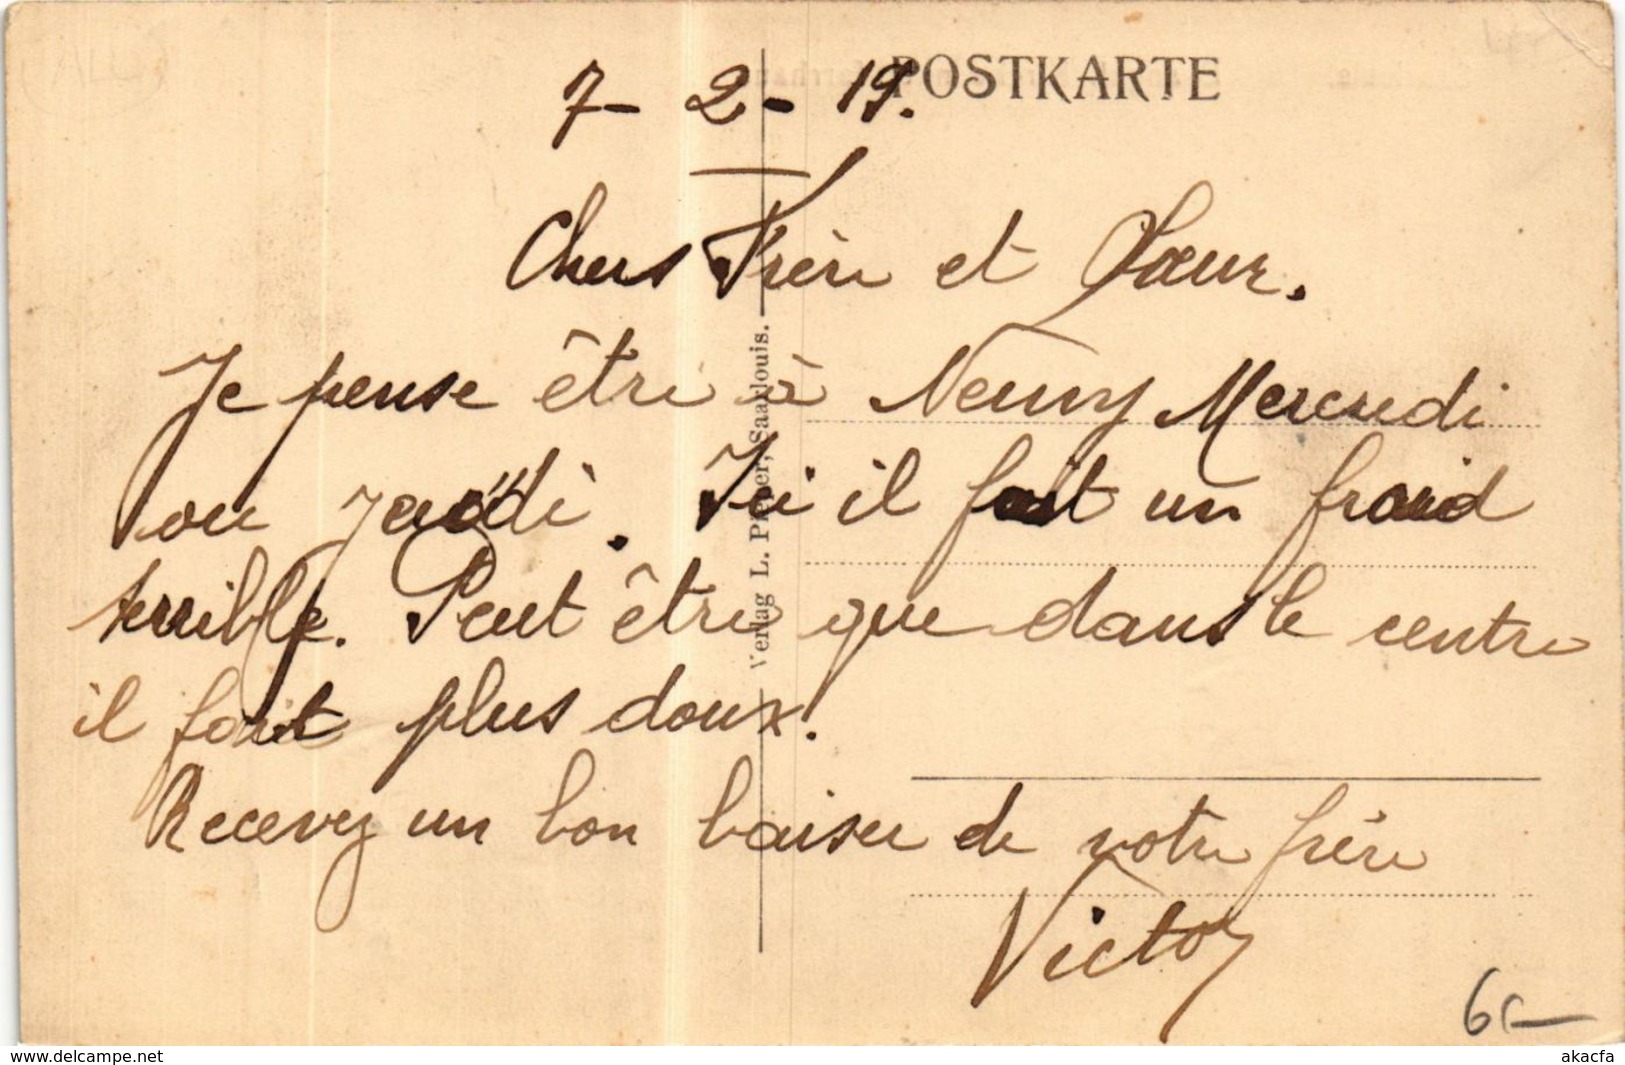 POSTKARTE
7- 2- 19.
Chers Frère et Sœur.
Je pense être à Neuvy Mercredi
ou jeudi. Ici il fait un froid
terrible. Peut être que dans le centre
il fait plus doux.
Recevez un bon baiser de votre frère
Victor
Verlag L. Saarlouis.
65
www.delcampe.net
akacfa